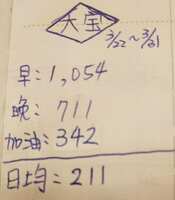 大宝
3/22~3/31
早:1,054
晚:711
加油:342
日均:211